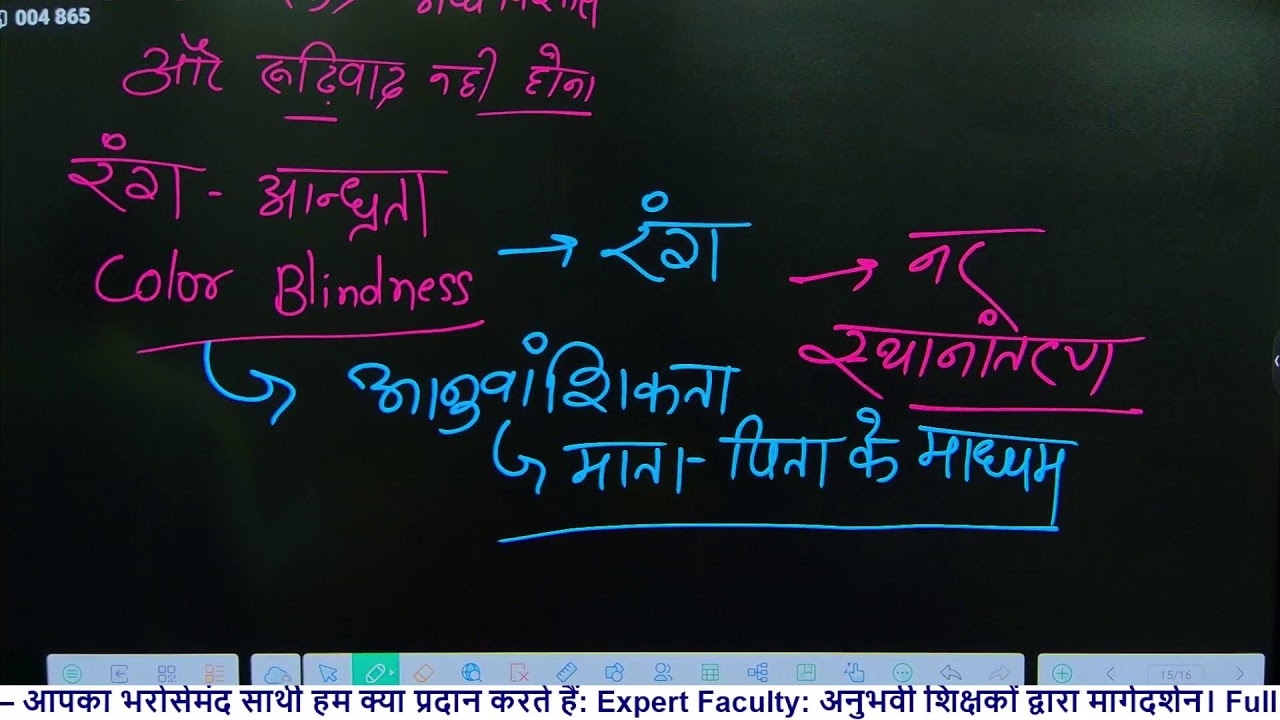 004 865
(5)
और रूढ़िवाद नही होना
रंग - आन्धता
Color Blindness
→ रंग
→ नर
स्थानांतरण
आनुवांशिकता
माता - पिता के माध्यम
15/16
– आपका भरोसेमंद साथी हम क्या प्रदान करते हैं: Expert Faculty: अनुभवी शिक्षकों द्वारा मार्गदर्शन। Full